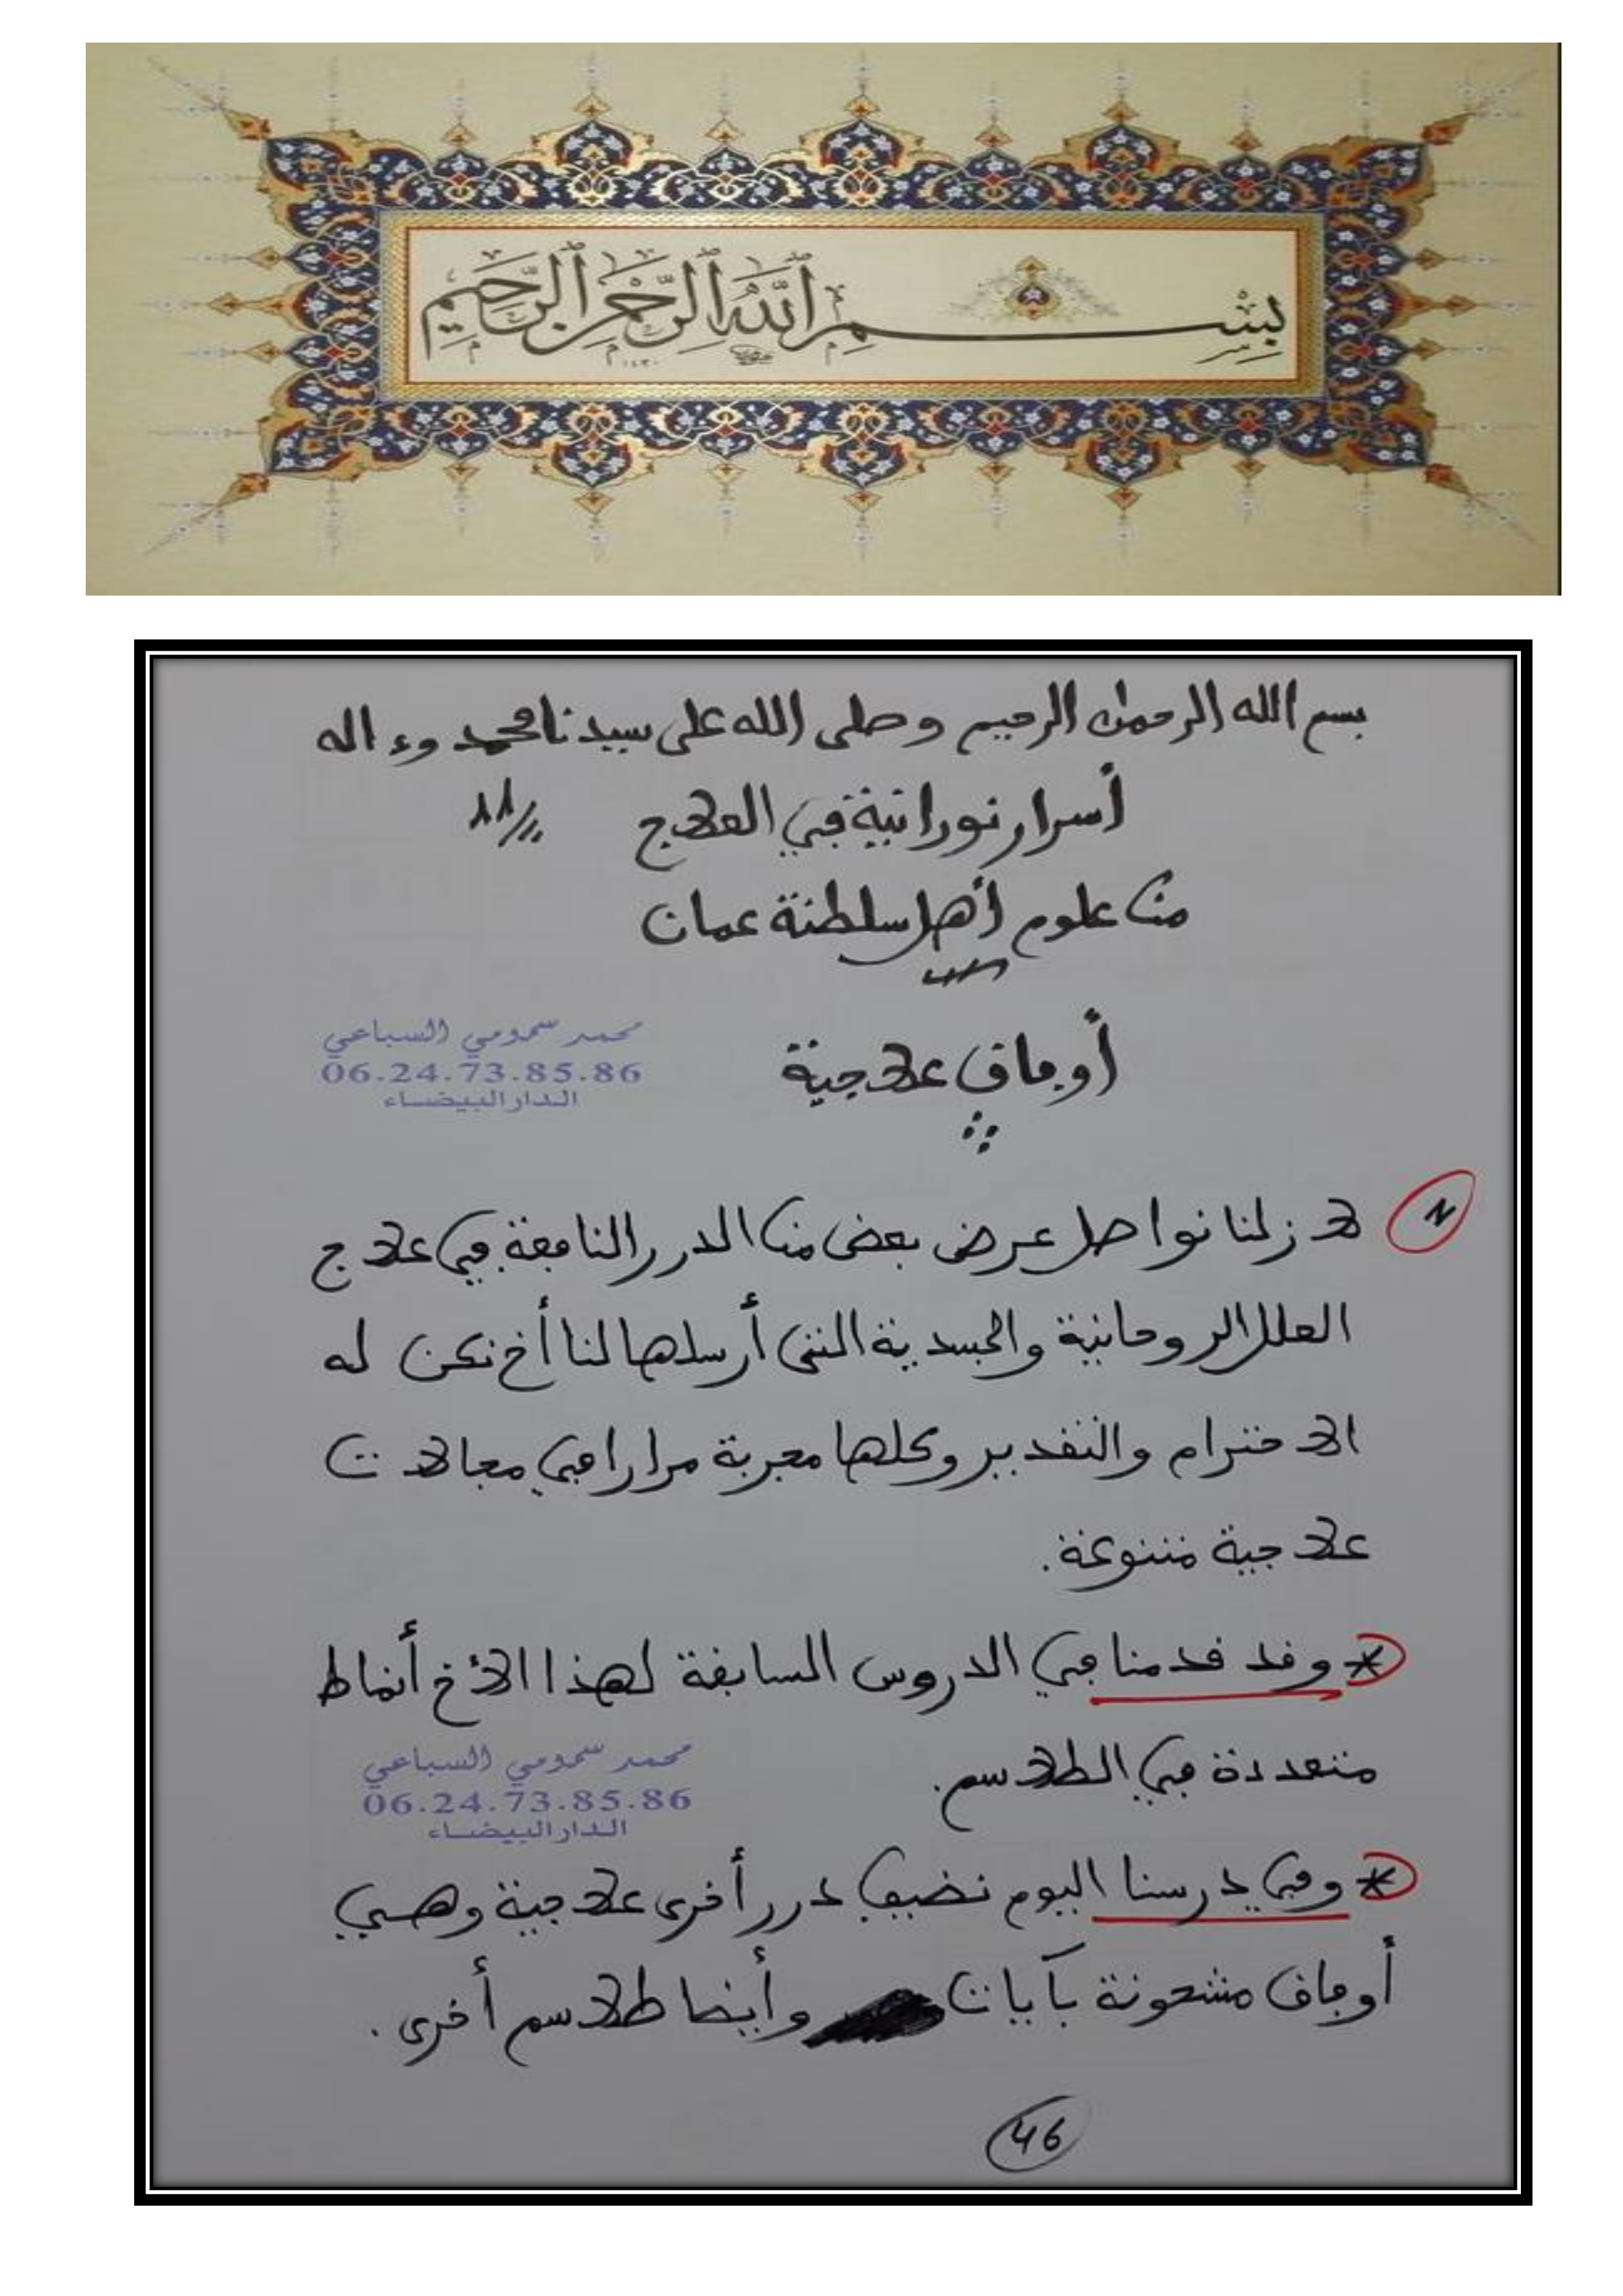 بِسْمِ ٱللَّهِ ٱلرَّحْمَٰنِ ٱلرَّحِيمِ
١٤٣٠
بسم الله الرحمان الرحيم وصلى الله على سيدنا محمد وءاله
أسرار نورانية في العلاج
من علوم أهل سلطنة عمان
محمد سمومي السباعي
06.24.73.85.86
الدار البيضاء
أوفاق علاجية
لا زلنا نواصل عرض بعض من الدرر النافعة في علاج
العلل الروحانية والجسدية التي أرسلها لنا أخ نكن له
الاحترام والتقدير وكلها مجربة مرارا في مجالات
علاجية متنوعة.
* وقد قدمنا في الدروس السابقة لهذا الأخ أنماط
متعددة في الطلاسم.
محمد سمومي السباعي
06.24.73.85.86
الدار البيضاء
* وفي درسنا اليوم نضيف درر أخرى علاجية وهي
أوفاق مشحونة بآيات وأيضا طلاسم أخرى.
46